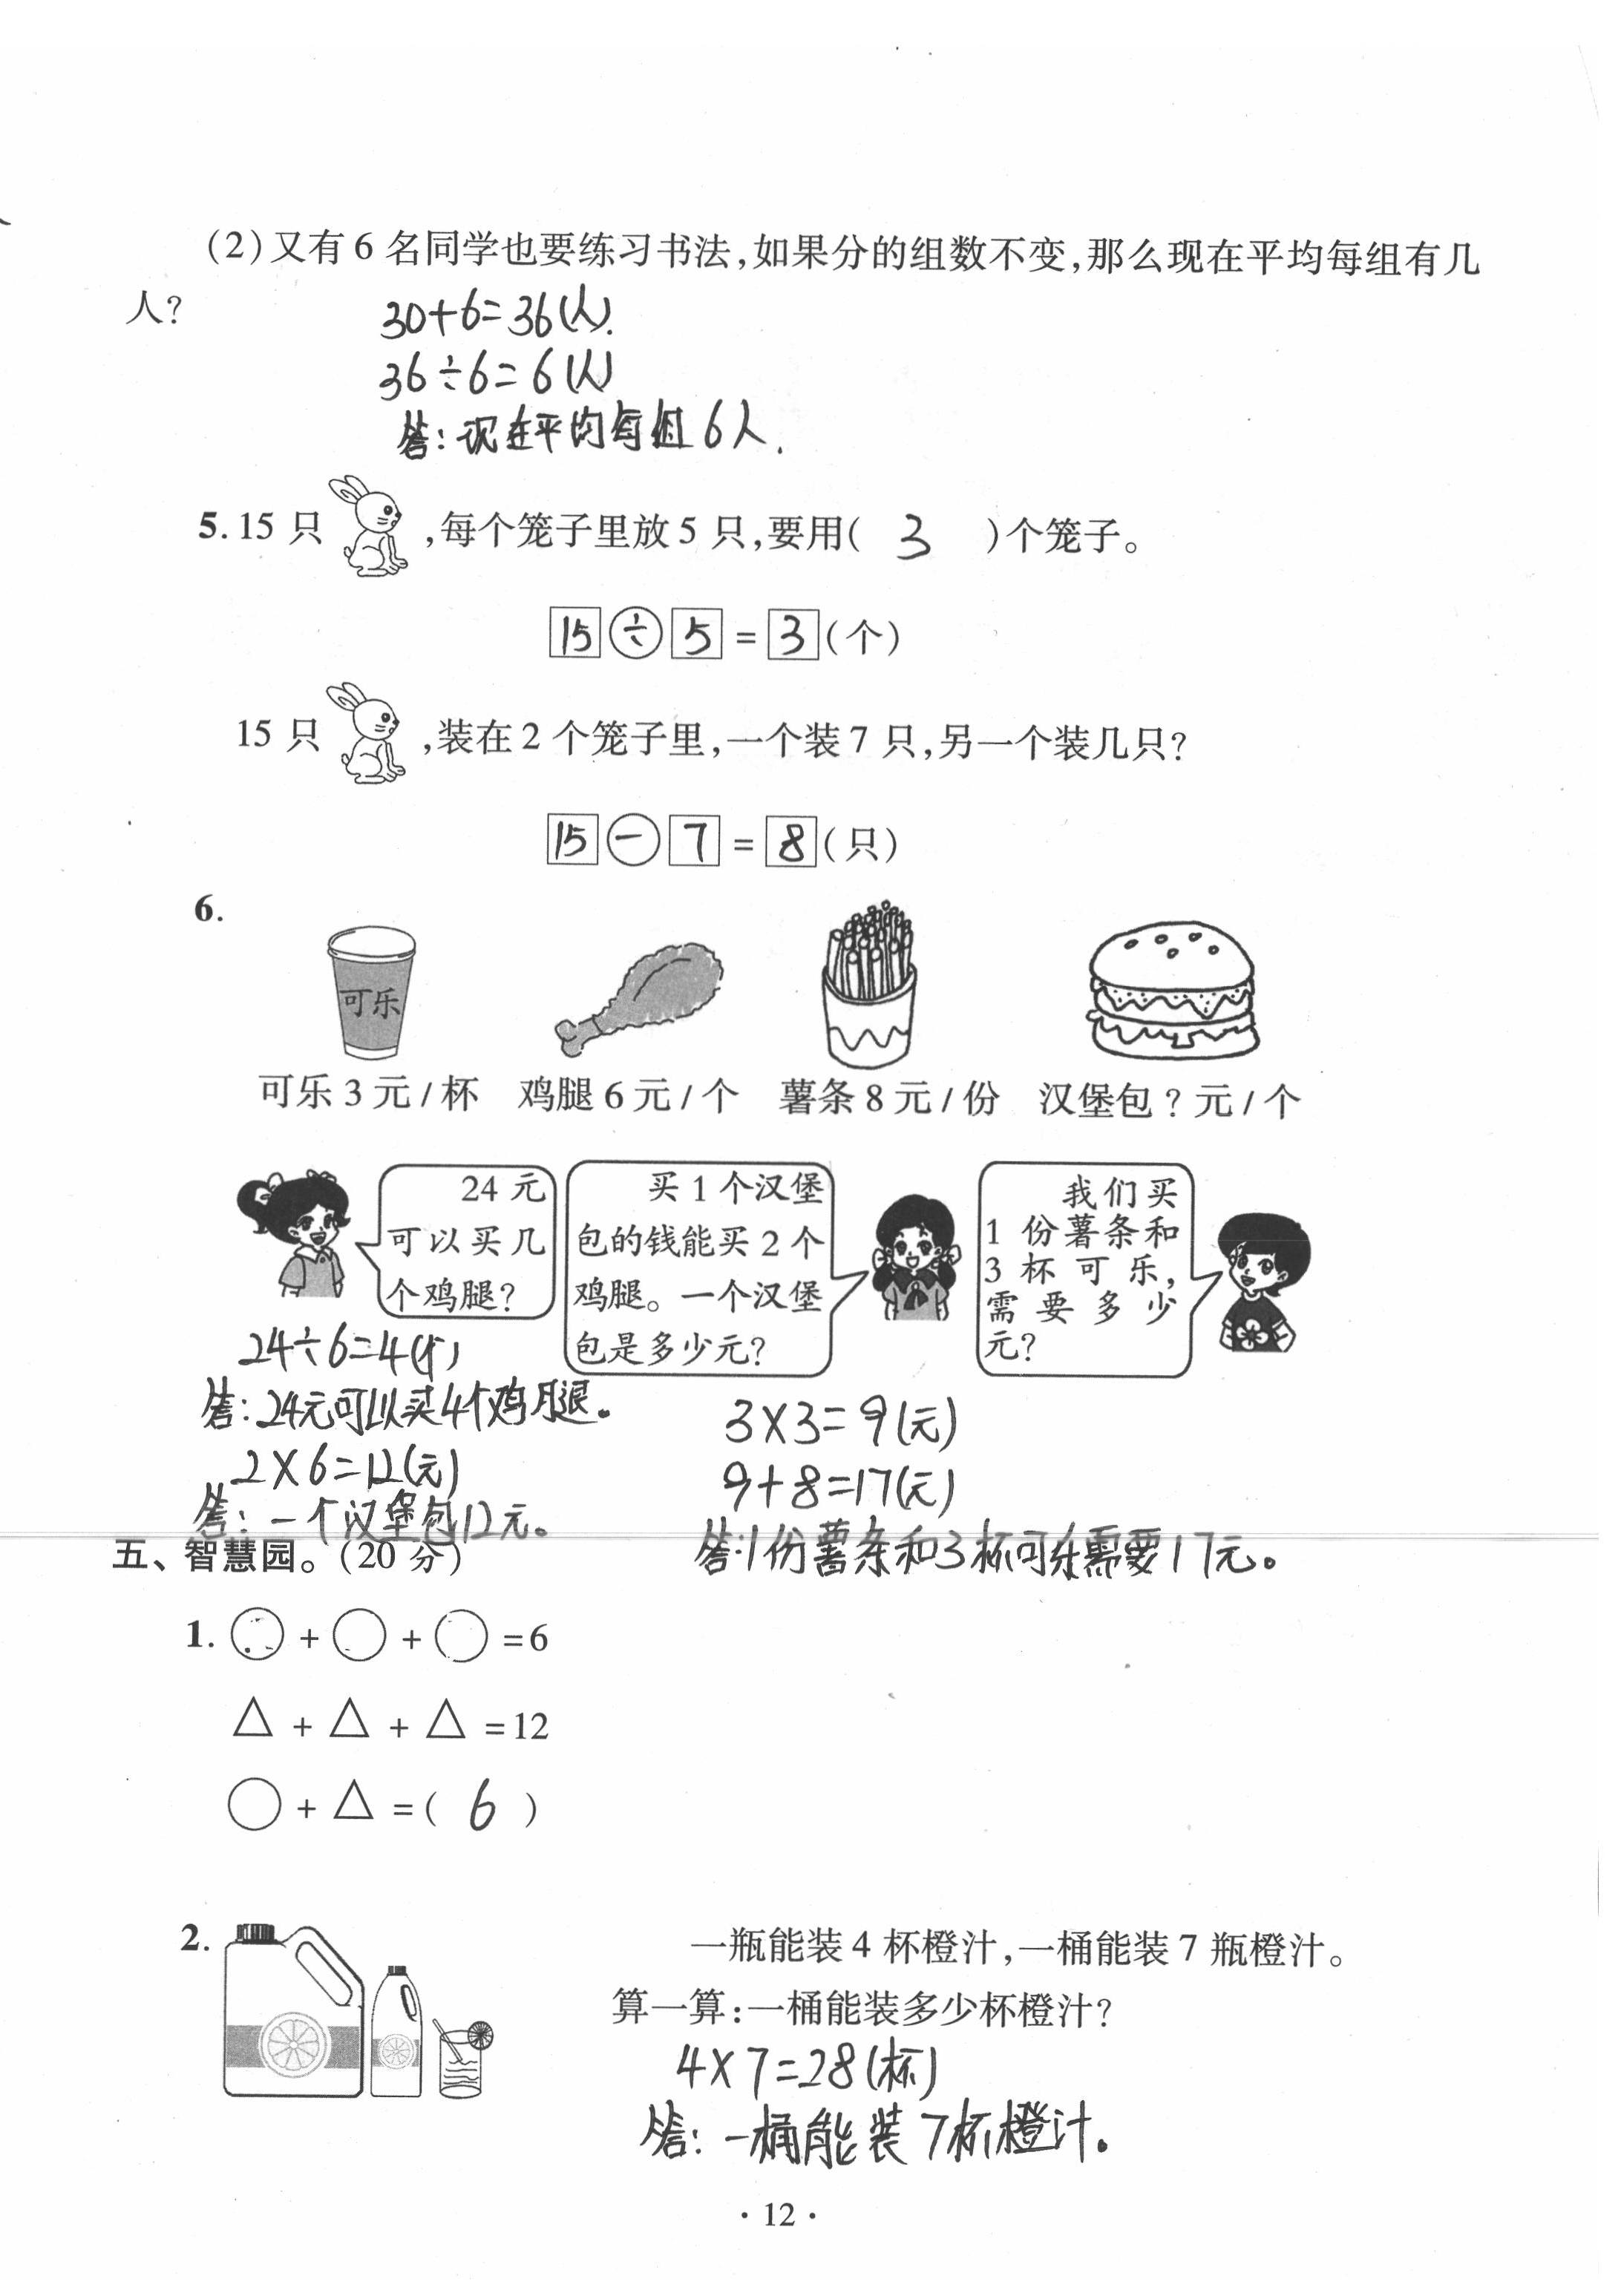 (2)又有6名同学也要练习书法,如果分的组数不变,那么现在平均每组有几
人?
30+6=36(人).
36÷6=6(人)
答:现在平均每组6人.
5.15只 ,每个笼子里放5只,要用( 3 )个笼子。
15÷5=3(个)
15只 ,装在2个笼子里,一个装7只,另一个装几只?
15-7=8(只)
6.
可乐
可乐3元/杯 鸡腿6元/个 薯条8元/份 汉堡包?元/个
24元
可以买几
个鸡腿?
买1个汉堡
包的钱能买2个
鸡腿。一个汉堡
包是多少元?
我们买
1份薯条和
3杯可乐,
需要多少
元?
24÷6=4(个)
答:24元可以买4个鸡腿。
2×6=12(元)
答:一个汉堡包12元。
3×3=9(元)
9+8=17(元)
答:1份薯条和3杯可乐需要17元。
五、智慧园。(20分)
1.○+○+○=6
△+△+△=12
○+△=( 6 )
2.
一瓶能装4杯橙汁,一桶能装7瓶橙汁。
算一算:一桶能装多少杯橙汁?
4×7=28(杯)
答:一桶能装7杯橙汁。
·12·